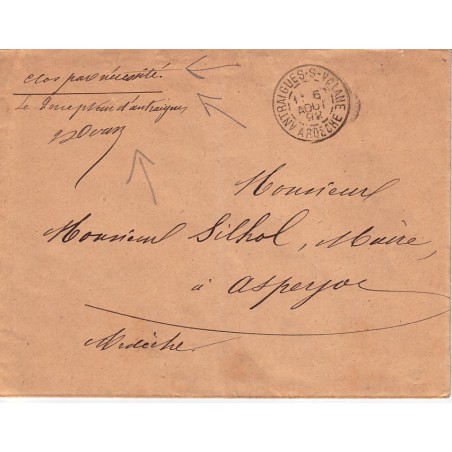 Clos par nécessité.
Le Percepteur d'antraigues
ANTRAIGUES-S-VOLANE
6
AOUT
92
ARDÈCHE
Monsieur
Monsieur Silhol, Maire,
à Asperjoc
Ardèche.